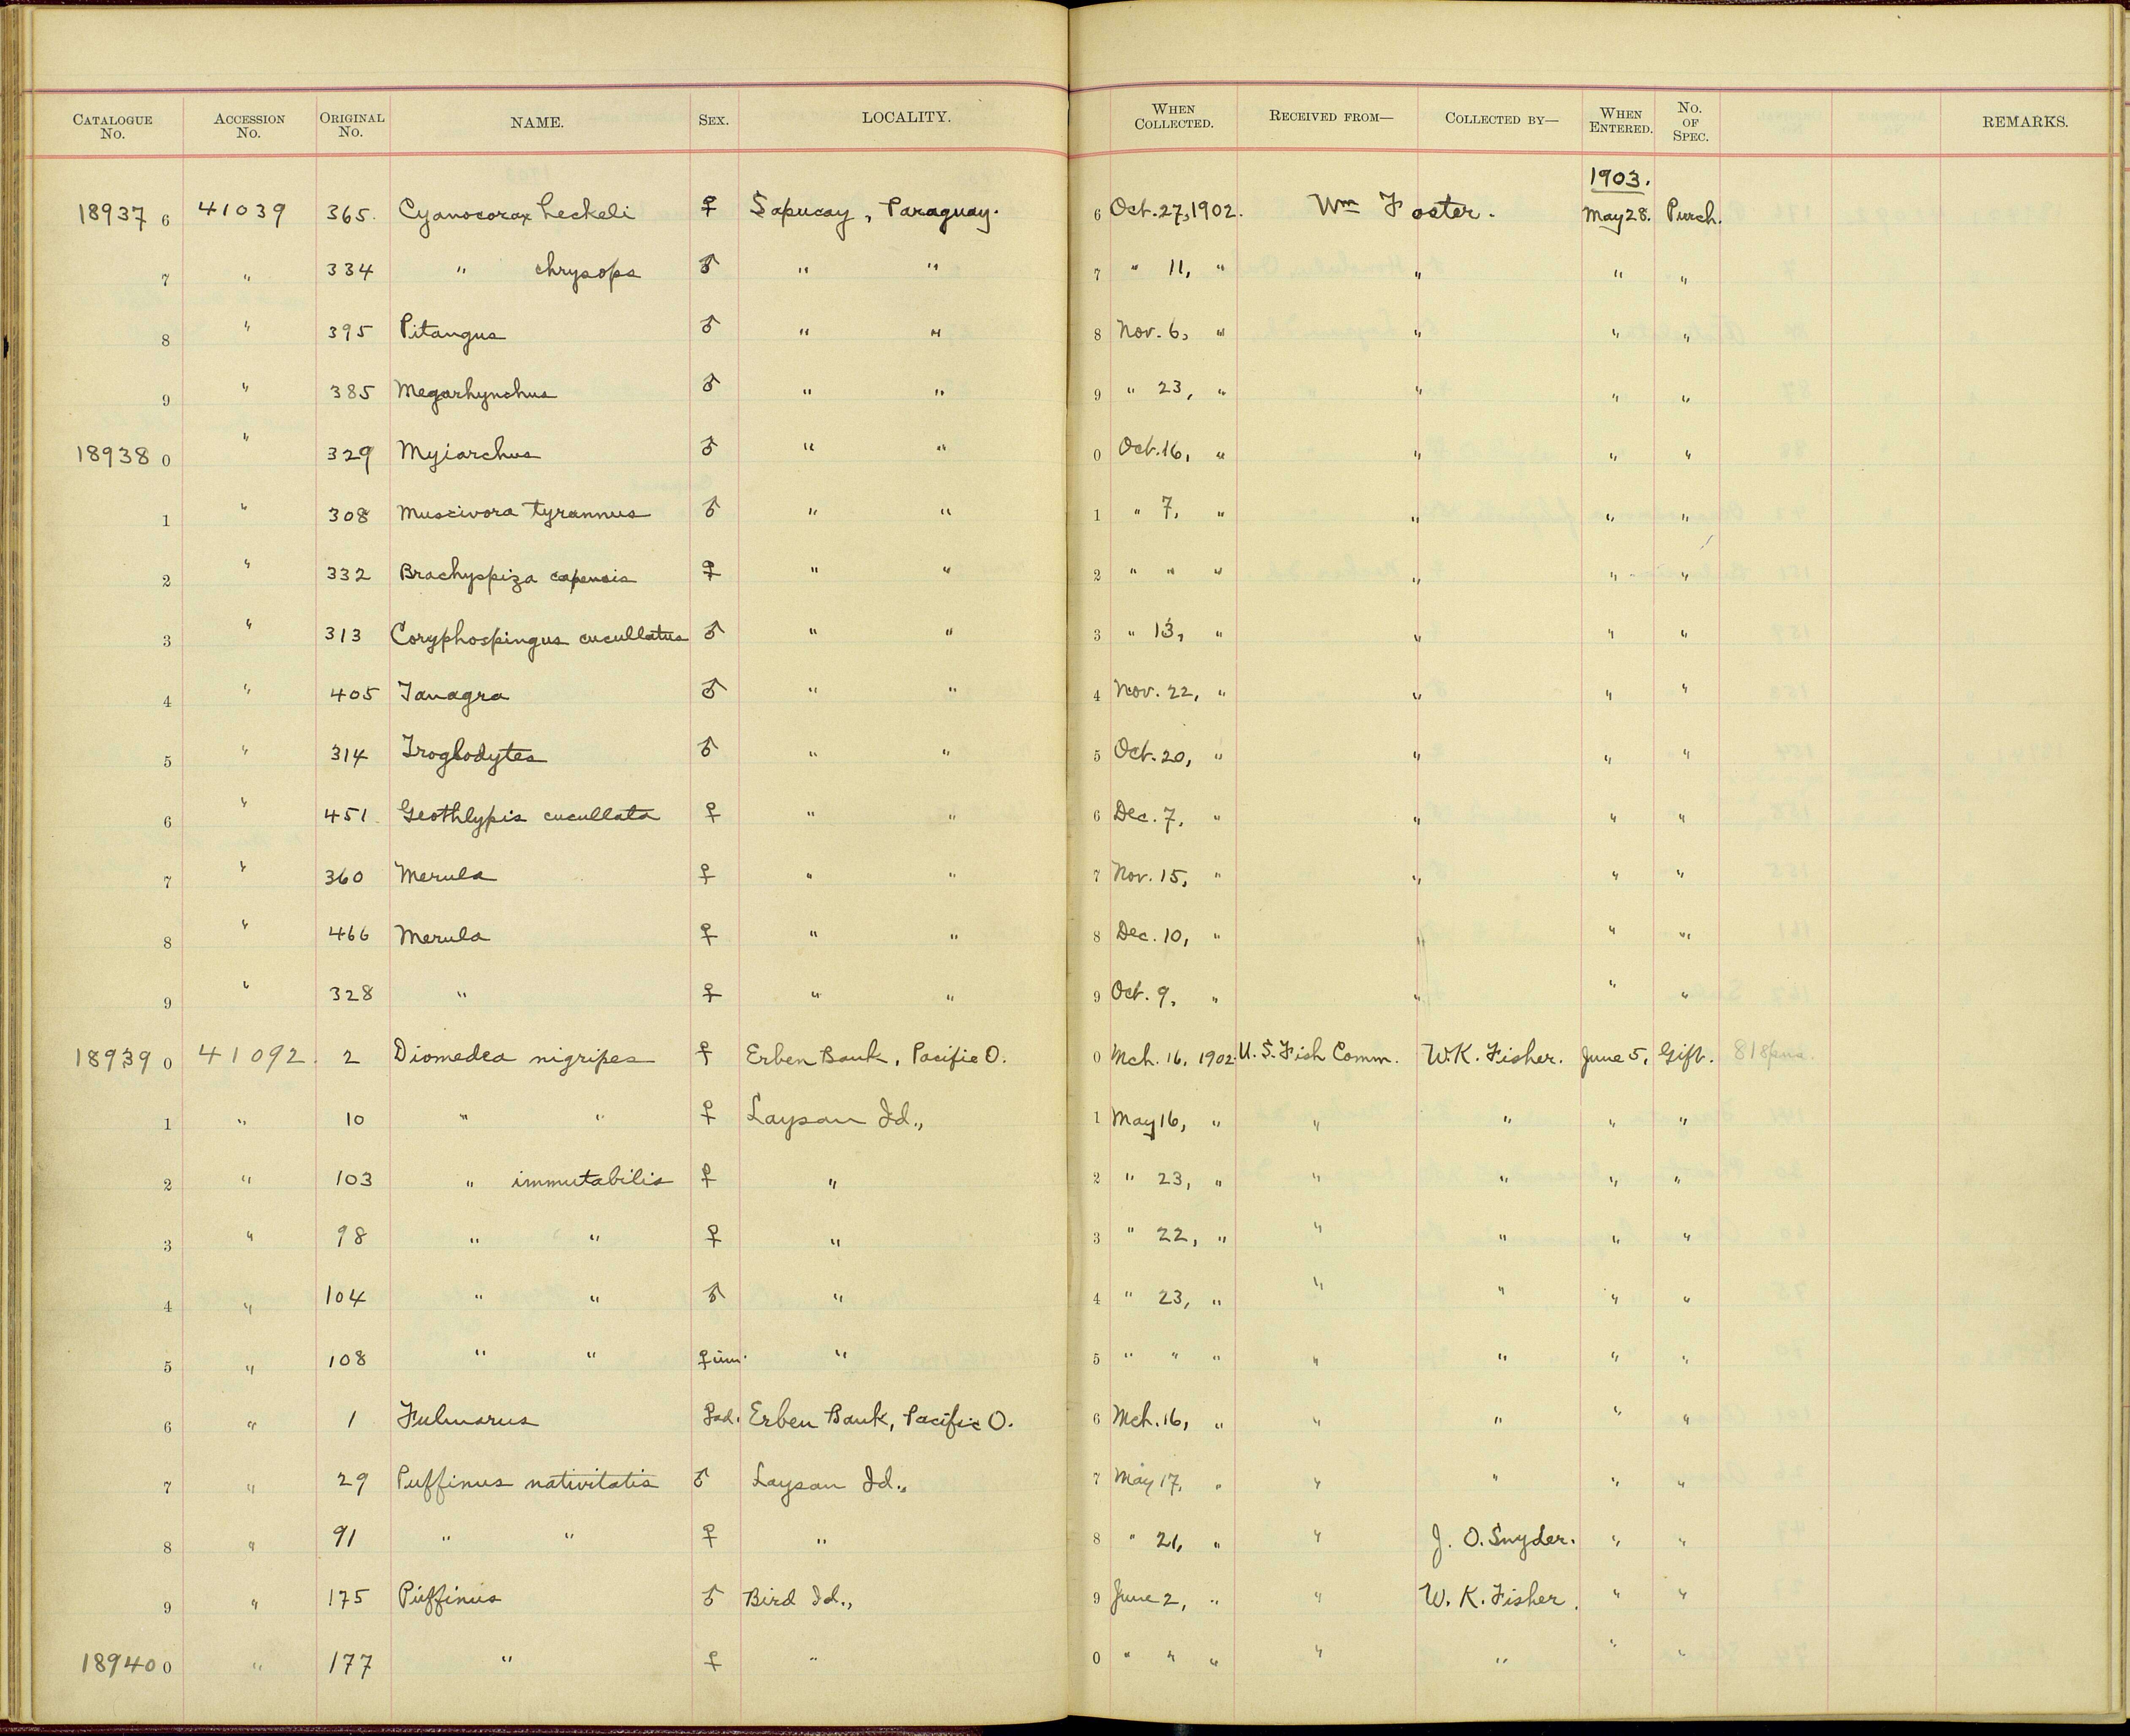 CATALOGUE No. ACCESSION No. ORIGINAL No. NAME. SEX. LOCALITY. WHEN COLLECTED. RECEIVED FROM— COLLECTED BY— WHEN ENTERED. No. OF SPEC. REMARKS.
1903.
18937 6 41039 365. Cyanocorax heckeli ♀ Sapucay, Paraguay. 6 Oct. 27, 1902. Wm Foster. May 28. Purch.
7 " 334 " chrysops ♂ " " 7 " 11, " " " "
8 " 395 Pitangus ♂ " " 8 Nov. 6, " " " "
9 " 385 Megarhynchus ♂ " " 9 " 23, " " " "
18938 0 " 329 Myiarchus ♂ " " 0 Oct. 16, " " " "
1 " 308 Muscivora tyrannus ♂ " " 1 " 7, " " " "
2 " 332 Brachyspiza capensis ♀ " " 2 " " " " " "
3 " 313 Coryphospingus cucullatus ♂ " " 3 " 13, " " " "
4 " 405 Tanagra ♂ " " 4 Nov. 22, " " " "
5 " 314 Troglodytes ♂ " " 5 Oct. 20, " " " "
6 " 451 Geothlypis cucullata ♀ " " 6 Dec. 7, " " " "
7 " 360 Merula ♀ " " 7 Nov. 15, " " " "
8 " 466 Merula ♀ " " 8 Dec. 10, " " " "
9 " 328 " ♀ " " 9 Oct. 9, " " " "
18939 0 41092. 2 Diomedea nigripes ♀ Erben Bank, Pacific O. 0 Mch. 16, 1902. U. S. Fish Comm. W. K. Fisher. June 5, Gift. 81
1 " 10 " " ♀ Laysan Id., 1 May 16, " " " " "
2 " 103 " immutabilis ♀ " 2 " 23, " " " " "
3 " 98 " " ♀ " 3 " 22, " " " " "
4 " 104 " " ♂ " 4 " 23, " " " " "
5 " 108 " " ♀ im. " 5 " " " " " " "
6 " 1 Fulmarus ♀ ad. Erben Bank, Pacific O. 6 Mch. 16, " " " " "
7 " 29 Puffinus nativitatis ♂ Laysan Id., 7 May 17, " " " " "
8 " 91 " " ♀ " 8 " 21, " " J. O. Snyder. " "
9 " 175 Puffinus ♂ Bird Id., 9 June 2, " " W. K. Fisher. " "
18940 0 " 177 " ♀ " 0 " " " " " " "